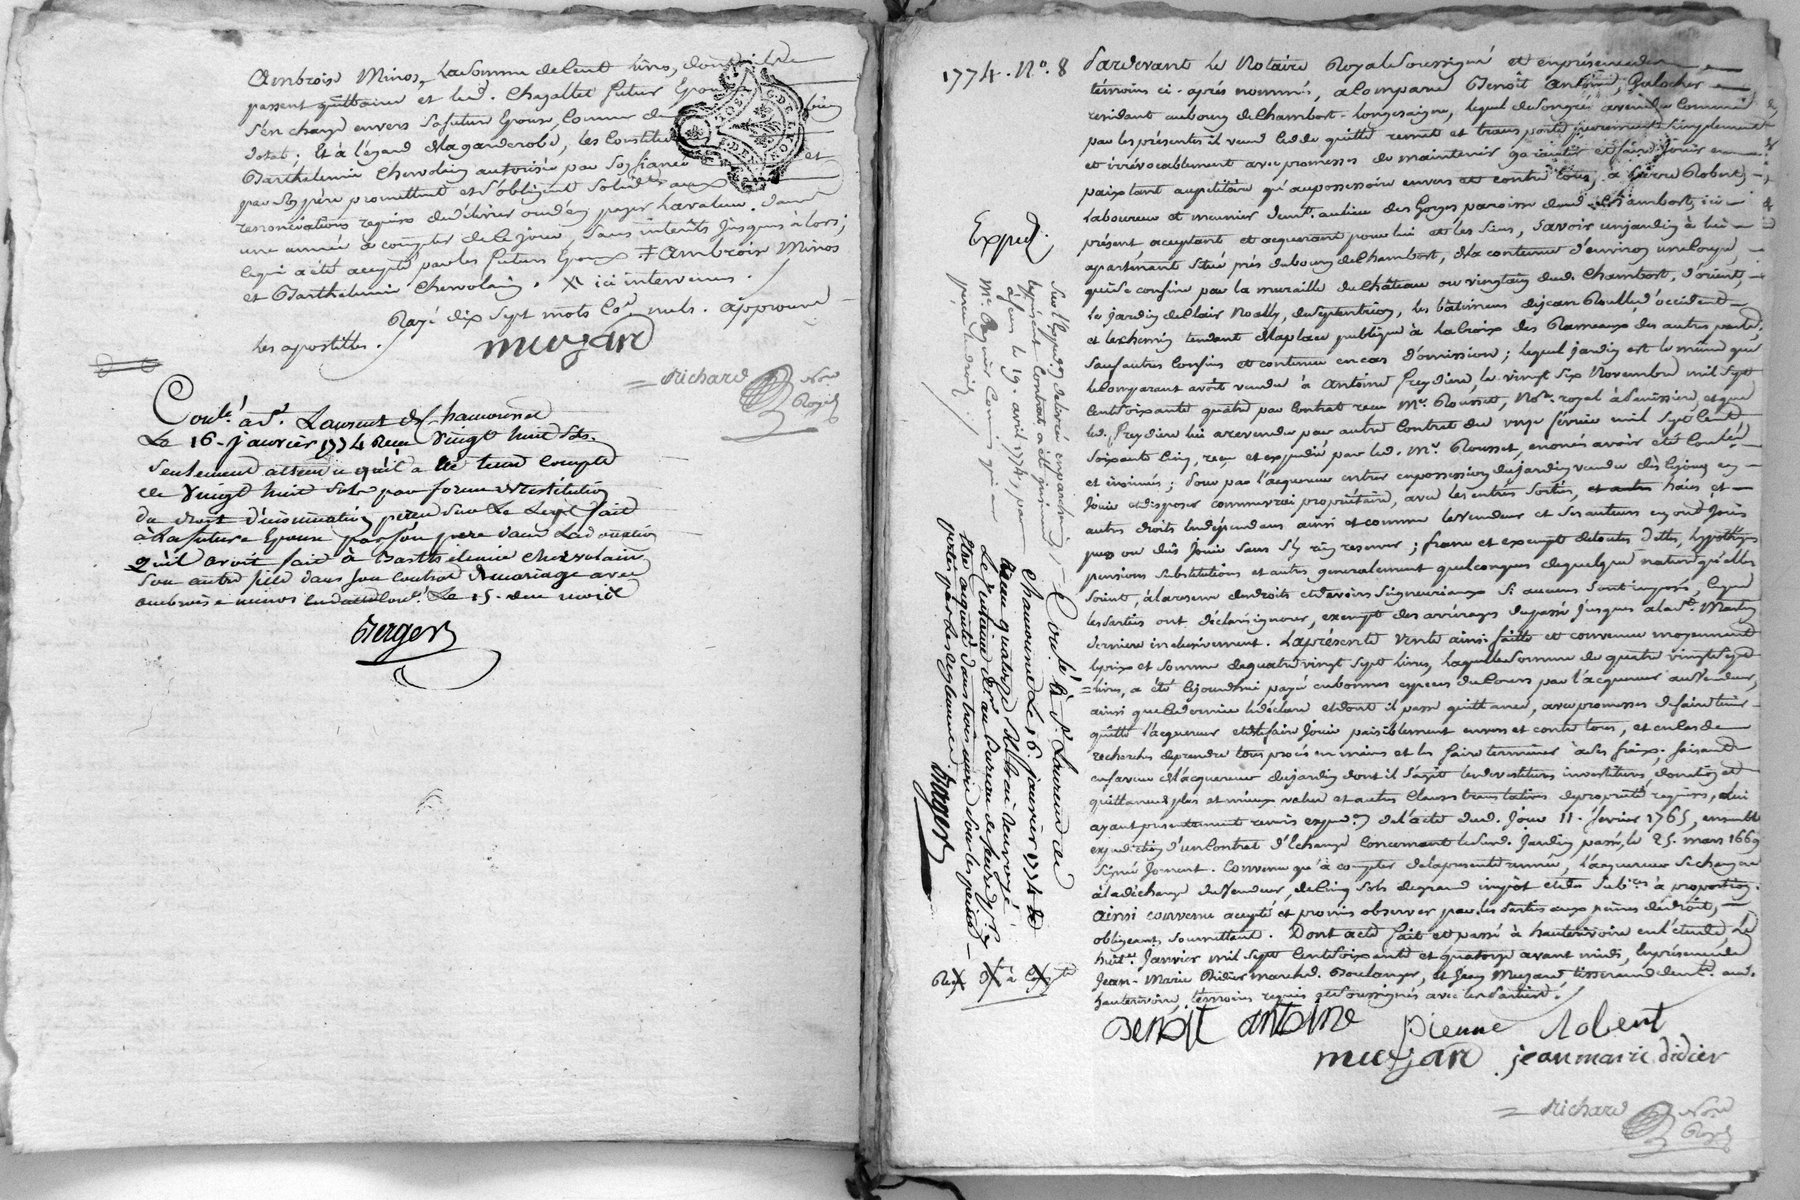 Ambroise Minos, la somme de Cent livres, dont
passent quittance et led. Chazallet futur Epoux
s'en charge envers sa future Epouse, comme de bien
dotal. Et à l'égard de la garderobe, les Constitu et
Barthelemie Chervolain autorisée par son fiancé
par son père promettent et s'obligent solid.t aux
renonciations requises de délivrer ou d'en payer la valeur dans
une année à compter de ce jour, sans interêts jusques à lors;
ce qui a été accepté par les futurs Epoux + Ambroise Minos
et Barthelemie Chervolain. X ici intervenus
Rayé dix sept mots comme nuls. approuvé
les apostilles.
muzard
Richard Nore Royal
Conlé. à St. Laurent de chamousset
Le 16. janvier 1774 Reçu Vingt huit sols.
seulement attendu qu'il a été tenu Compte
de Vingt huit sols par forme de restitution
du droit d'insinuation perçu sur Le Legs fait
à La future Epouse par son pere dans La donation
qu'il avoit fait à Barthelemie Chervolain
son autre fille dans son contrat de mariage avec
ambroise minos Le 15. du mois
Berger
1774. No. 8
Pardevant le Notaire Royal soussigné et en présence des
témoins ci-après nommés, a Comparu Benoît Antoine, Galocher
résidant au bourg de Chambost-longessaigne, lequel de son gré a vendu comme
par les présentes il vend cede quitte remet et transporte purement simplement
et irrévocablement avec promesses de maintenir garantir et faire jouir en
paix tant au petitoire qu'au possessoire envers et contre tous, à Pierre Robert,
Laboureur et meunier demt. au lieu des Gorges paroisse dud. Chambost, ici
présent acceptant et acquerant pour lui et les siens, Savoir un jardin à lui
apartenant situé près du bourg de Chambost, de la contenue d'environ une Coupe,
qui se confine par la muraille du Château ou vingtain dud. Chambost, d'orient,
le jardin de Clair Noally, de septentrion, les bâtimens de jean Roulle d'occident
et le chemin tendant de la place publique à la Croix des Rameaux, des autres parts,
sauf autres Confins et contenue en cas d'omission; lequel jardin est le même que
le Comparant avoit vendu à Antoine Freydiere le vingt six Novembre mil sept
Cent soixante quatre par Contrat reçu Mr. Rousset, Nore. royal à , et que
led. Freydiere lui a revendu par autre Contrat du onze février mil sept Cent
soixante Cinq, reçu et expédié par led. Mr. Rousset, enoncés avoir été Contlés
et insinués; Pour par l'acquereur entrer en possession du jardin vendu dès ce jour en
jouir et disposer comme vrai propriétaire, avec les entrées sorties, haies et
autres droits en dépendans ainsi et comme le Vendeur et ses auteurs en ont jouis
pus ou dûs jouir sans s'y rien reserver; franc et exempt de toutes dettes, hypothèques
pensions substitutions et autres generalement quelconques de quelque nature qu'elles
soient, à la reserve des droits et devoirs seigneuriaux si aucuns sont imposés, ce que
les Parties ont déclaré ignorer, exempt des arrérages du passé jusques à la St. Martin
derniere inclusivement. La présente vente ainsi faitte et convenue moyennant
le prix et somme de quatre vingt sept livres, laquelle somme de quatre vingt sept
livres, a été ce jourdhui payé en bonnes especes du Cours par l'acquereur au Vendeur,
ainsi que le dernier le déclare et dont il passe quittance, avec promesses de faire tenir
quitte l'acquereur et de le faire jouir paisiblement envers et contre tous, et en Cas de
recherches de prendre tous procès en mains et les faire terminer à ses fraix; faisant
en faveur de l'acquereur du jardin dont il s'agit les devestitures investitures, donation et
quittance de plus et mieux value et autres Clauses translatives de propriété requises, lui
ayant presentement remis expedon. de l'acte dud. jour 11. février 1765, ensemble
expedition d'un Contrat d'Echange Concernant le susd. jardin, passé le 25. mars 1669
signé Jornent. Convenu qu'à compter de la presente année, l'acquereur se charge
à la décharge du Vendeur, de Cinq sols de grand impôt et des subres. à proportion.
Ainsi convenu accepté et promis observer par les Parties aux peines de droit,
obligeant, soumettant. Dont acte fait et passé à hauterivoire en l'étude Le
huit. Janvier mil sept Cent soixante et quatorze avant midi, En présence de
Jean-Marie Didier marchd. Boulanger, et Jean Muzard tisserand demt. aud.
hauterivoire, témoins requis et soussignés avec les Parties.
Benoit antoine pierre Robert
muzard jean marie didier
Richard Nore Royal
Expedé.
Sur l'Expedon. délivrée en parchemin
le présent Contrat a été insinué
à feurs le 19. avril 1774, par
Mr. Commis qui a
perçu le droit
Conlé. à St. Laurent de
Chamousset Le 16. janvier 1774 de
Reçu quatorze sols et ai renvoyé
Le Centieme den. au bureau de feurs p.r y
être acquité dans trois mois sous les peines
portées par les reglemens.
Berger